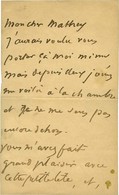 Mon cher Mathey
J'aurais voulu vous
porter ça moi même
mais depuis deux jours
me voilà à la chambre
et je ne me sens pas
encore dehors.
vous m'avez fait
grand plaisir avec
cette petite et,